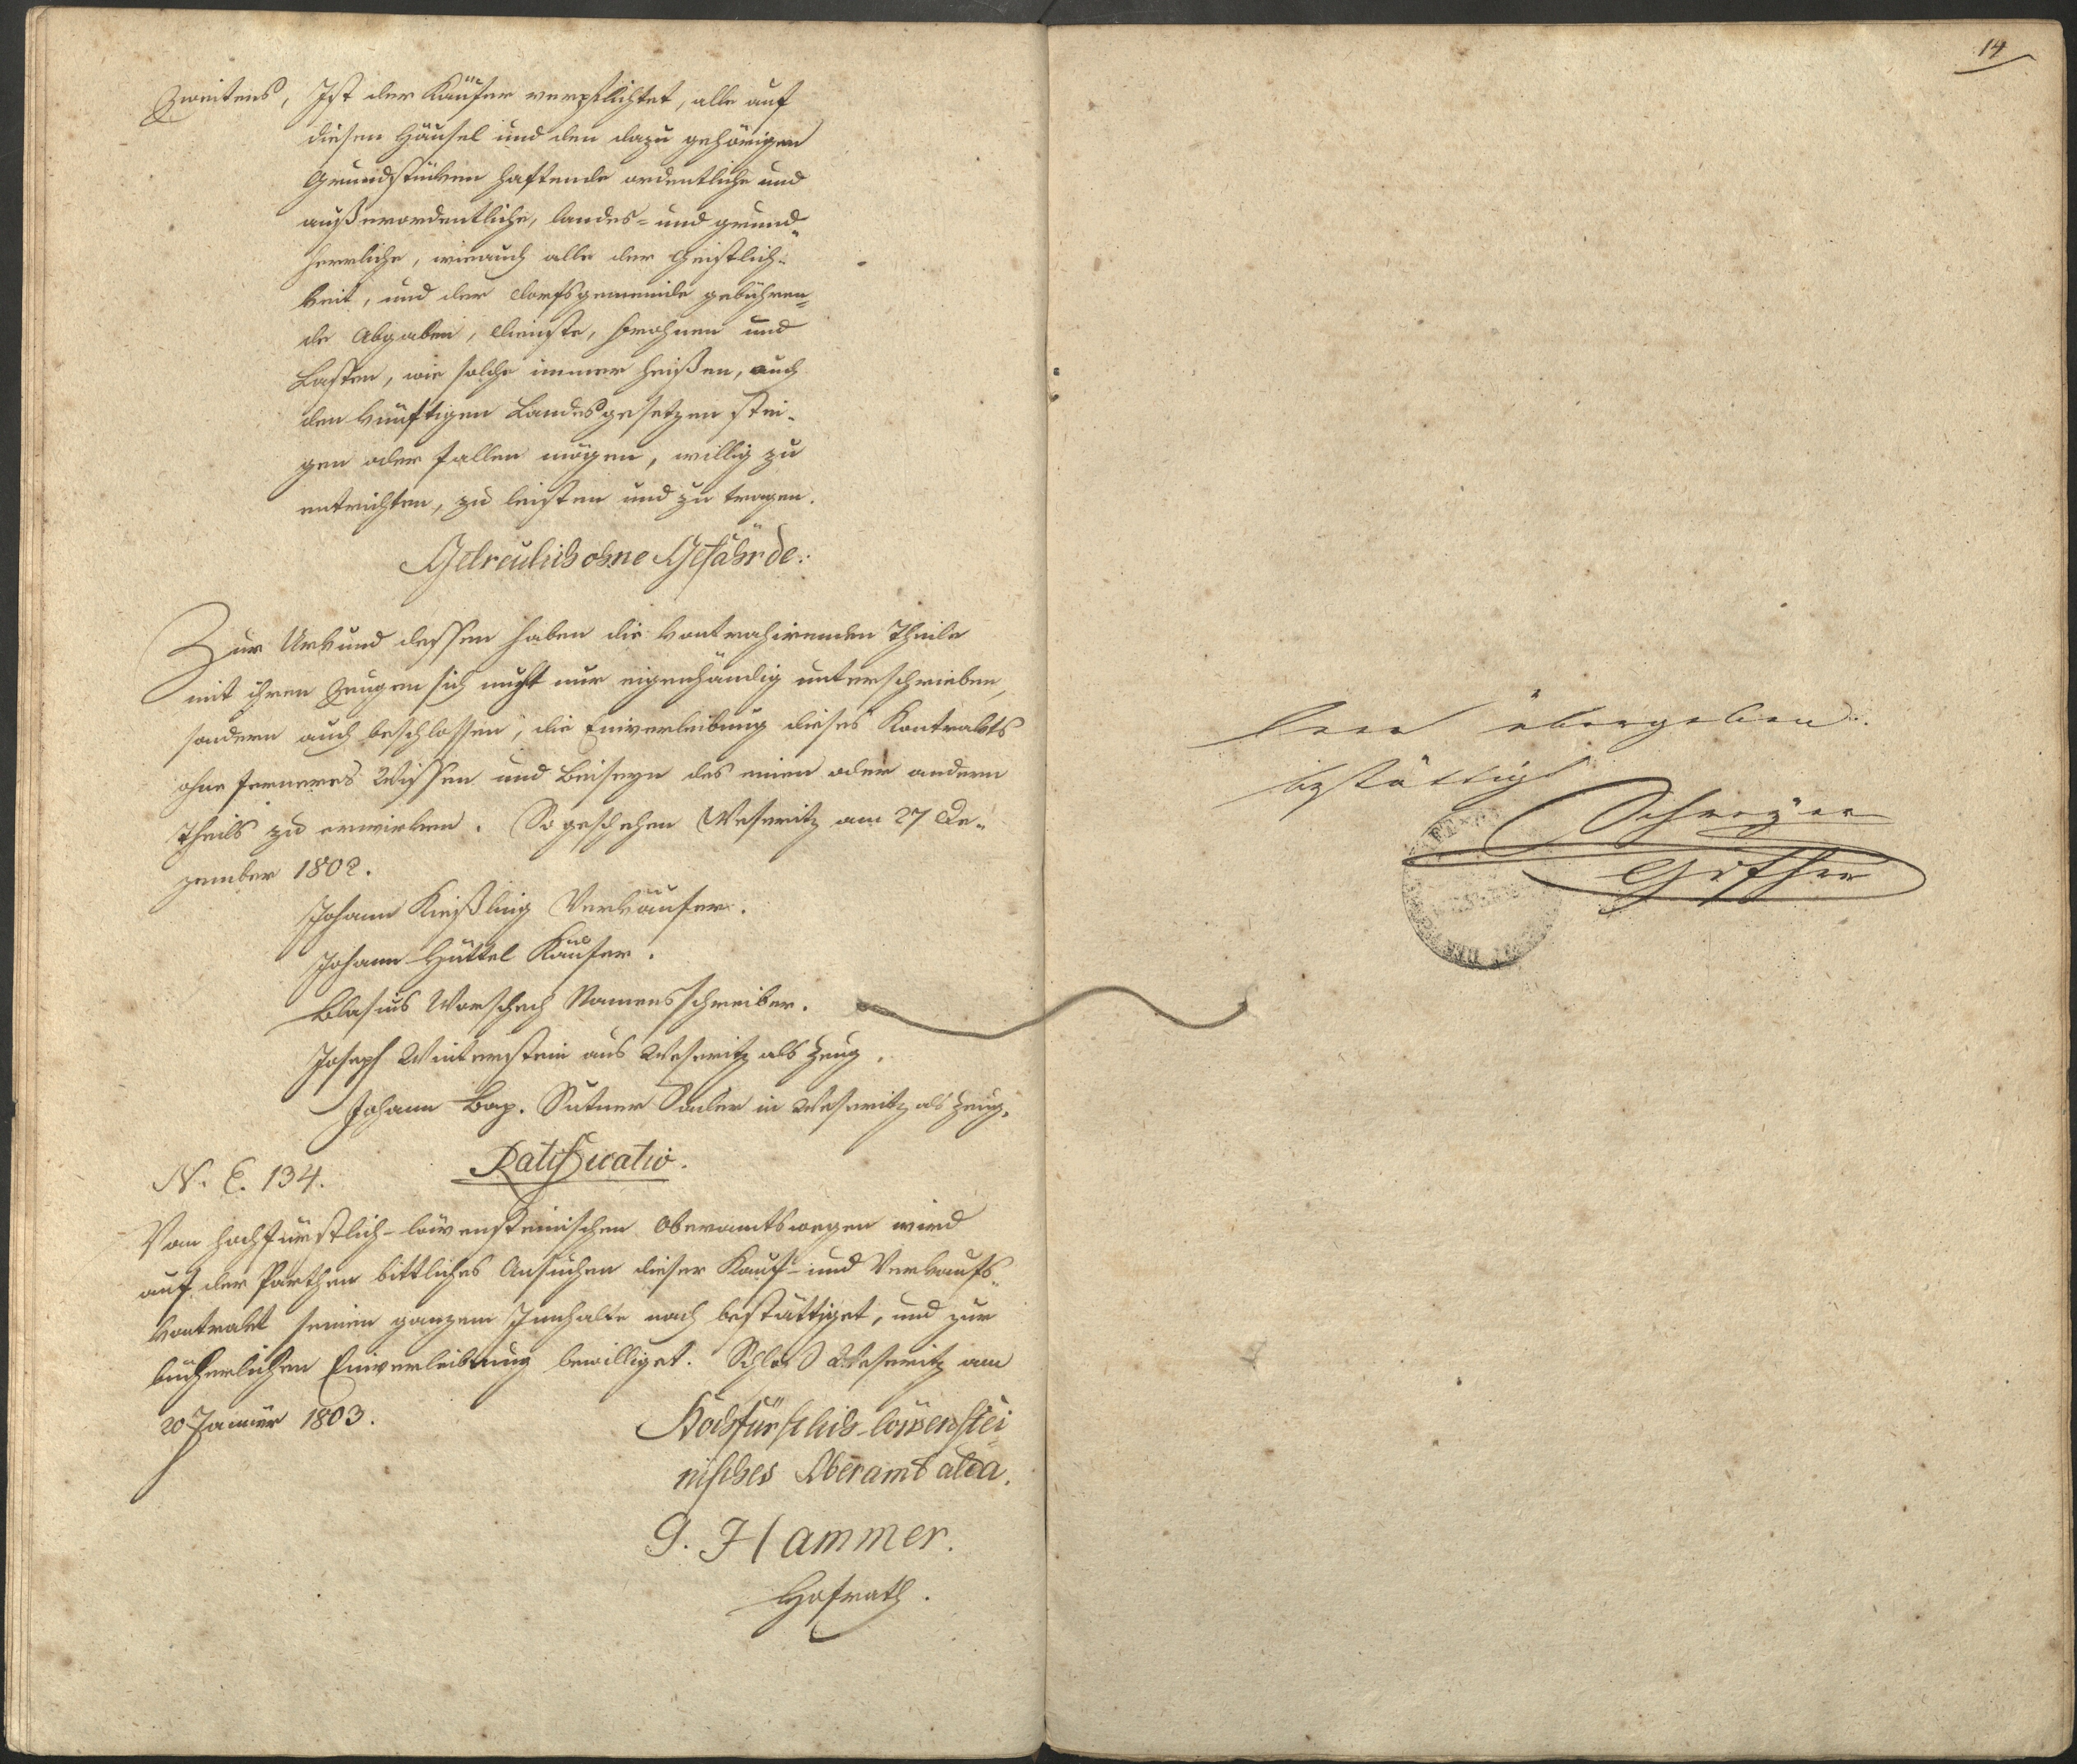 Zweitens, Ist der Käufer verpflichtet, alle auf
diesen Häusel und den dazu gehörigen
Grundstücken haftende ordentliche und
außerordentliche, landes- und grund-
herrliche, wie auch alle der Geistlich-
keit, und der Dorfsgemeinde gebühren-
de Abgaben, Dienste, Frohnen und
Lasten, wie solche immer heißen, auch
den künftigen Landesgesetzen stei-
gen oder fallen mögen, willig zu
entrichten, zu leisten und zu tragen.
Getreulich ohne Gefährde.
Zur Urkund dessen haben die kontrahirenden Theile
mit ihren Zeugen sich nicht nur eigenhändig unterschrieben,
sondern auch beschlossen, die Einverleibung dieses Kontrakts
ohne ferneres Wissen und Beiseyn des einen oder andern
Theils zu erwirken. So geschehen Weseritz am 27 De-
zember 1802.
Johann Kießling Verkäufer.
Johann Hüttel Käufer.
Blasius Worschech Namensschreiber.
Joseph Winterstein aus Weseritz als Zeug.
Johann Bap. Sutner in Weseritz als Zeug.
N. E. 134. Ratificatio.
Von hochfürstlich-löwensteinischen Oberamtswegen wird
auf der Parthen bittliches Ansuchen dieser Kauf- und Verkaufs-
kontrakt seinen ganzem Innhalte nach bestättiget, und zur
bücherlichen Einverleibung bewilliget. Schloß Weseritz am
20 Jänner 1803.
Hochfürstlich-löwenstei
nisches Oberamt alda.
G. Hammer.
Hofrath.
14
Leer übergeben
bestättigt